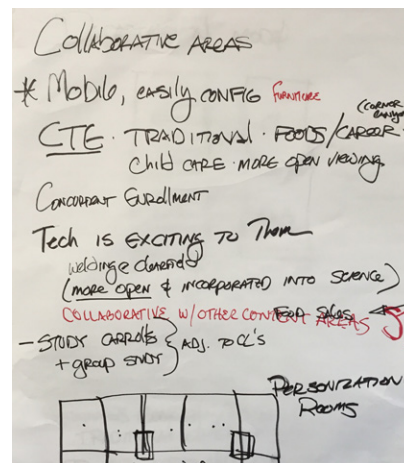 Collaborative Areas
* Mobile, easily config furniture
CTE · Traditional · Foods/Career
(Corner
Child care · more open viewing
Concurrent Enrollment
Tech is exciting to them
welding @ clearfield
(more open & incorporated into science)
Collaborative w/other content areas
- Study carrols
+ group study
} Adj. to CL's
Personization
Rooms